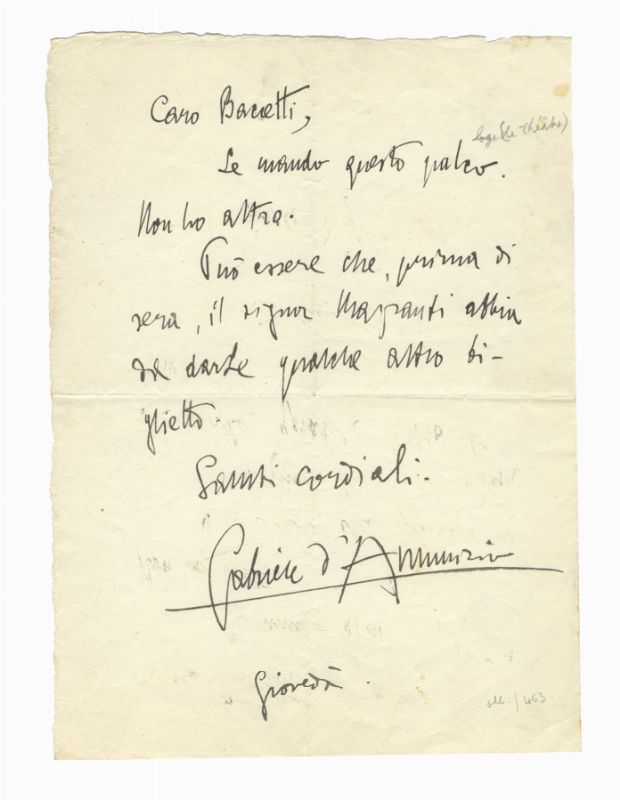 Caro Bacetti,
loge (de théâtre)
Le mando questo palco.
Non ho altro.
Può essere che, prima di
sera, il signor Magranti abbia
da darLe qualche altro bi-
glietto.
Saluti cordiali.
Gabriele d'Annunzio
Giovedì.
/ 463